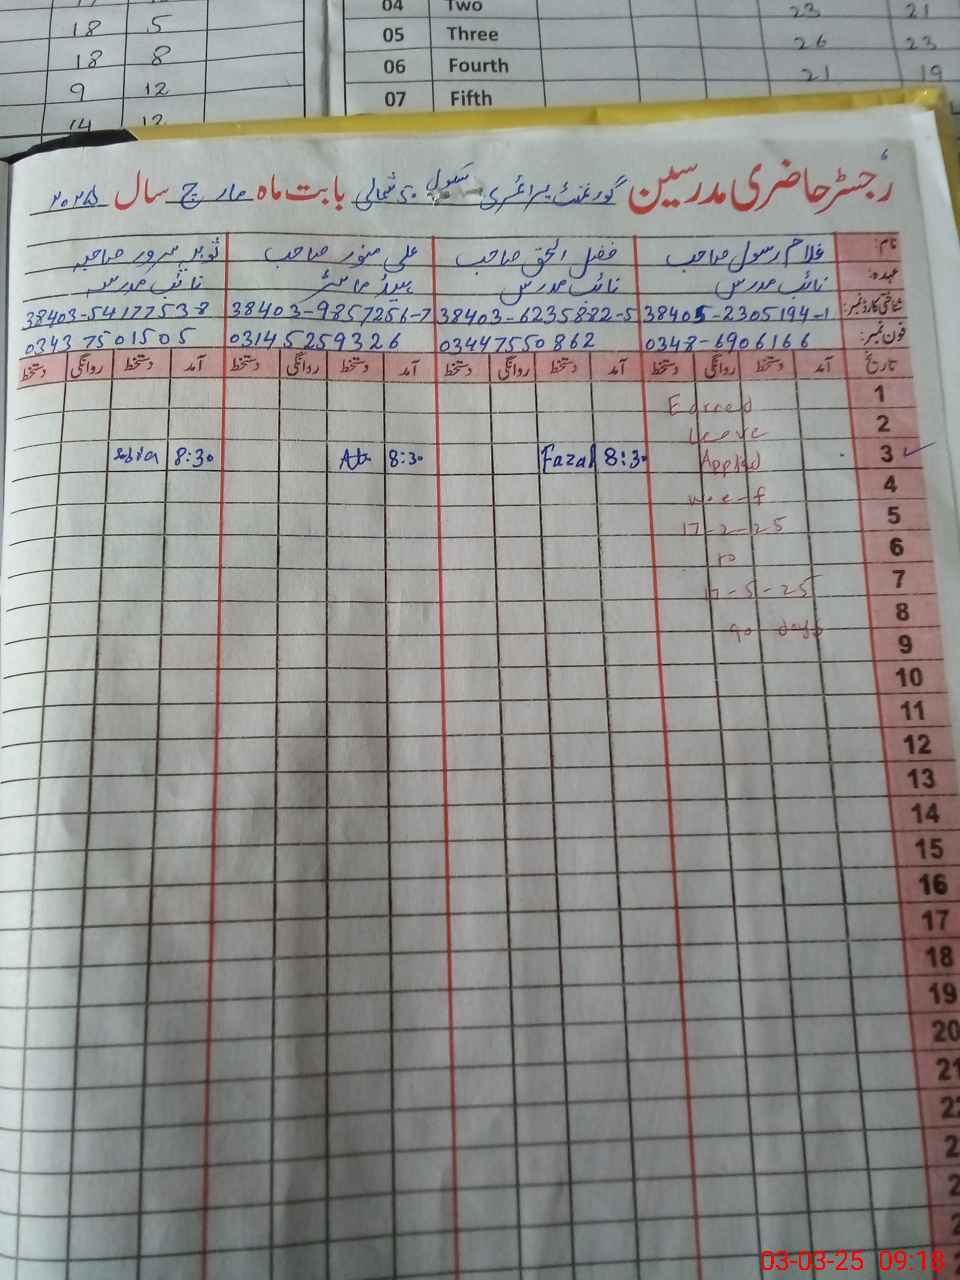 18 5
18 8
9 12
14 12
04 Two 23 21
05 Three 26 23
06 Fourth 21 19
07 Fifth
رجسٹر حاضری مدرسین گورنمنٹ پرائمری سکول شمالی بابت ماہ مارچ سال ۲۰۲۵
نام: غلام رسول صاحب فضل الحق صاحب علی منور صاحب ثوبیہ سرور صاحبہ
عہدہ: نائب مدرس نائب مدرس ہیڈ ماسٹر نائب مدرسہ
شناختی کارڈ نمبر: 38405-2305194-1 38403-6235882-5 38403-9857256-7 38403-5417753-8
فون نمبر: 0348-6906166 03447550862 03145259326 03437501505
تاریخ آمد دستخط روانگی دستخط آمد دستخط روانگی دستخط آمد دستخط روانگی دستخط آمد دستخط روانگی دستخط
1 Earned
2 Leave
3 Applied 8:30 Fazal 8:30 8:30
4 w.e.f
5 17-2-25
6 to
7 17-5-25
8
9 90 days
10
11
12
13
14
15
16
17
18
19
20
21
03-03-25 09:18